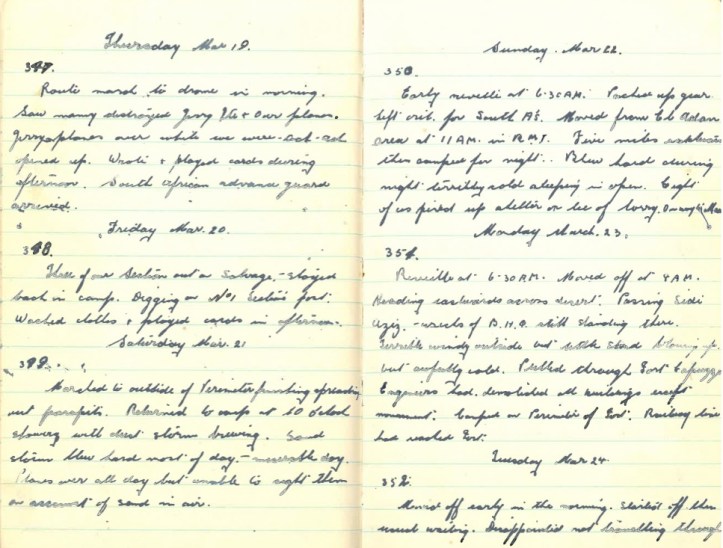 Thursday Mar 19.
347.
Route march to drome in morning.
Saw many destroyed Jerry Ite & Our planes.
Jerry planes over while we were - ack-ack
opened up. Wrote & played cards during
afternoon. South African advance guard
arrived.
Friday Mar. 20.
348.
Three of our Section out on Salvage, - stayed
back in camp. Digging on No 1 Section post.
Washed clothes & played cards in afternoon.
Saturday Mar. 21
349.
Marched to outside of Perimeter finishing spreading
out parapets. Returned to camp at 10 o'clock
showery with dust storm brewing. Sand
storm blew hard most of day. - miserable day.
Planes over all day but unable to sight them
on account of sand in air.
Sunday. Mar 22.
350.
Early reveille at 6.30 AM. Packed up gear
left for South A's. Moved from El Adam
area at 11 AM. in R.M.T. Five miles
then camped for night.. Blew hard during
night terribly cold sleeping in open. Eight
of us fixed up shelter on lee of lorry.
Monday March. 23.
351.
Reveille at 6-30 AM. Moved off at 8 AM.
Heading eastwards across desert. Passing Sidi
Aziz, - wrecks of B.H.Q. still standing there.
Terrible windy outside but with sand blowing up.
but awfully cold. Pulled through Fort Capuzzo
Engineers had demolished all buildings except
monument. Camped on Perimeter of Fort. Railway line
had reached Fort.
Tuesday Mar 24.
352.
Moved off early in the morning. Started off then
usual waiting. Disappointed not travelling through